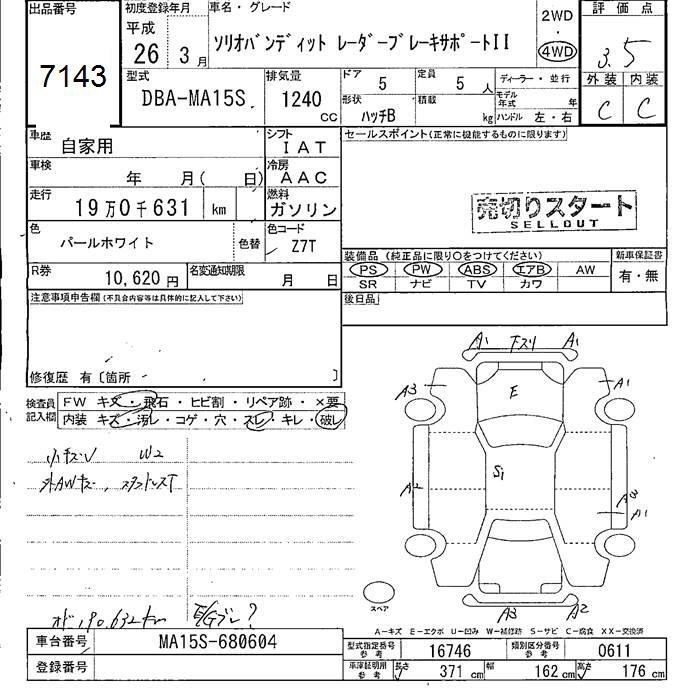 出品番号
7143
初度登録年月
平成
26 3月
車名・グレード
ソリオバンディット レーダーブレーキサポートII
2WD
・
4WD
評価点
3.5
外装 内装
C C
型式
DBA-MA15S
排気量
1240
CC
ドア
5
定員
5
人
形状
ハッチB
積載
kg
ディーラー・並行
モデル年式
年
ハンドル 左・右
車歴
自家用
シフト
IAT
セールスポイント(正常に機能するものに限ります)
車検
年 月( 日)
冷房
AAC
走行
19万0千631 km
燃料
ガソリン
売切りスタート
SELLOUT
色
パールホワイト
色替
色コード
Z7T
装備品 (純正品に限り○をつけてください)
新車保証書
PS PW ABS エアB AW
SR ナビ TV カワ
有・無
R券
10,620 円
名変通知期限
月 日
後日品
注意事項申告欄(不具合内容等は具体的に記入して下さい)
修復歴 有〔箇所 〕
検査員記入欄
FW キズ・飛石・ヒビ割・リペア跡・×要
内装 キズ・汚レ・コゲ・穴・スレ・キレ・破レ
小キズ W2
外AWキズ、スタンドレスT
オド190,632km
E/Gブレ?
A1 下スリ A1
A3 E A1
A2 S1 A3
A1
A3 A2
スペア
A―キズ E―エクボ U―凹み W―補修跡 S―サビ C―腐食 XX―交換済
車台番号
MA15S-680604
登録番号
型式指定番号参考
16746
類別区分番号参考
0611
車庫証明用参考
長さ
371 cm
幅
162 cm
高さ
176 cm